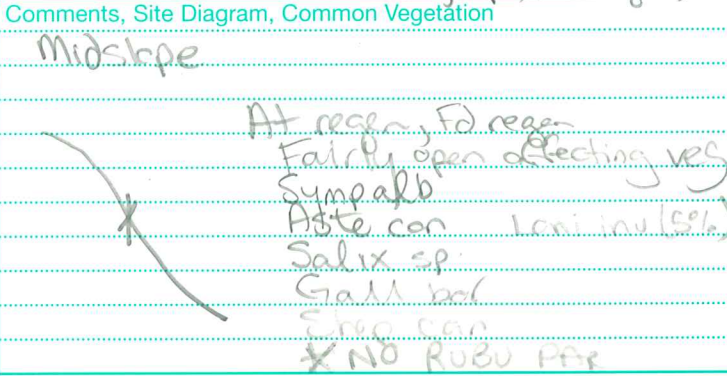 Comments, Site Diagram, Common Vegetation
Midslope
At regen, Fd regen
Fairly open affecting veg
Sympalb
Aste con Loni inv (5%)
Salix sp.
Gall bol
Shep can
* NO RUBU PAR